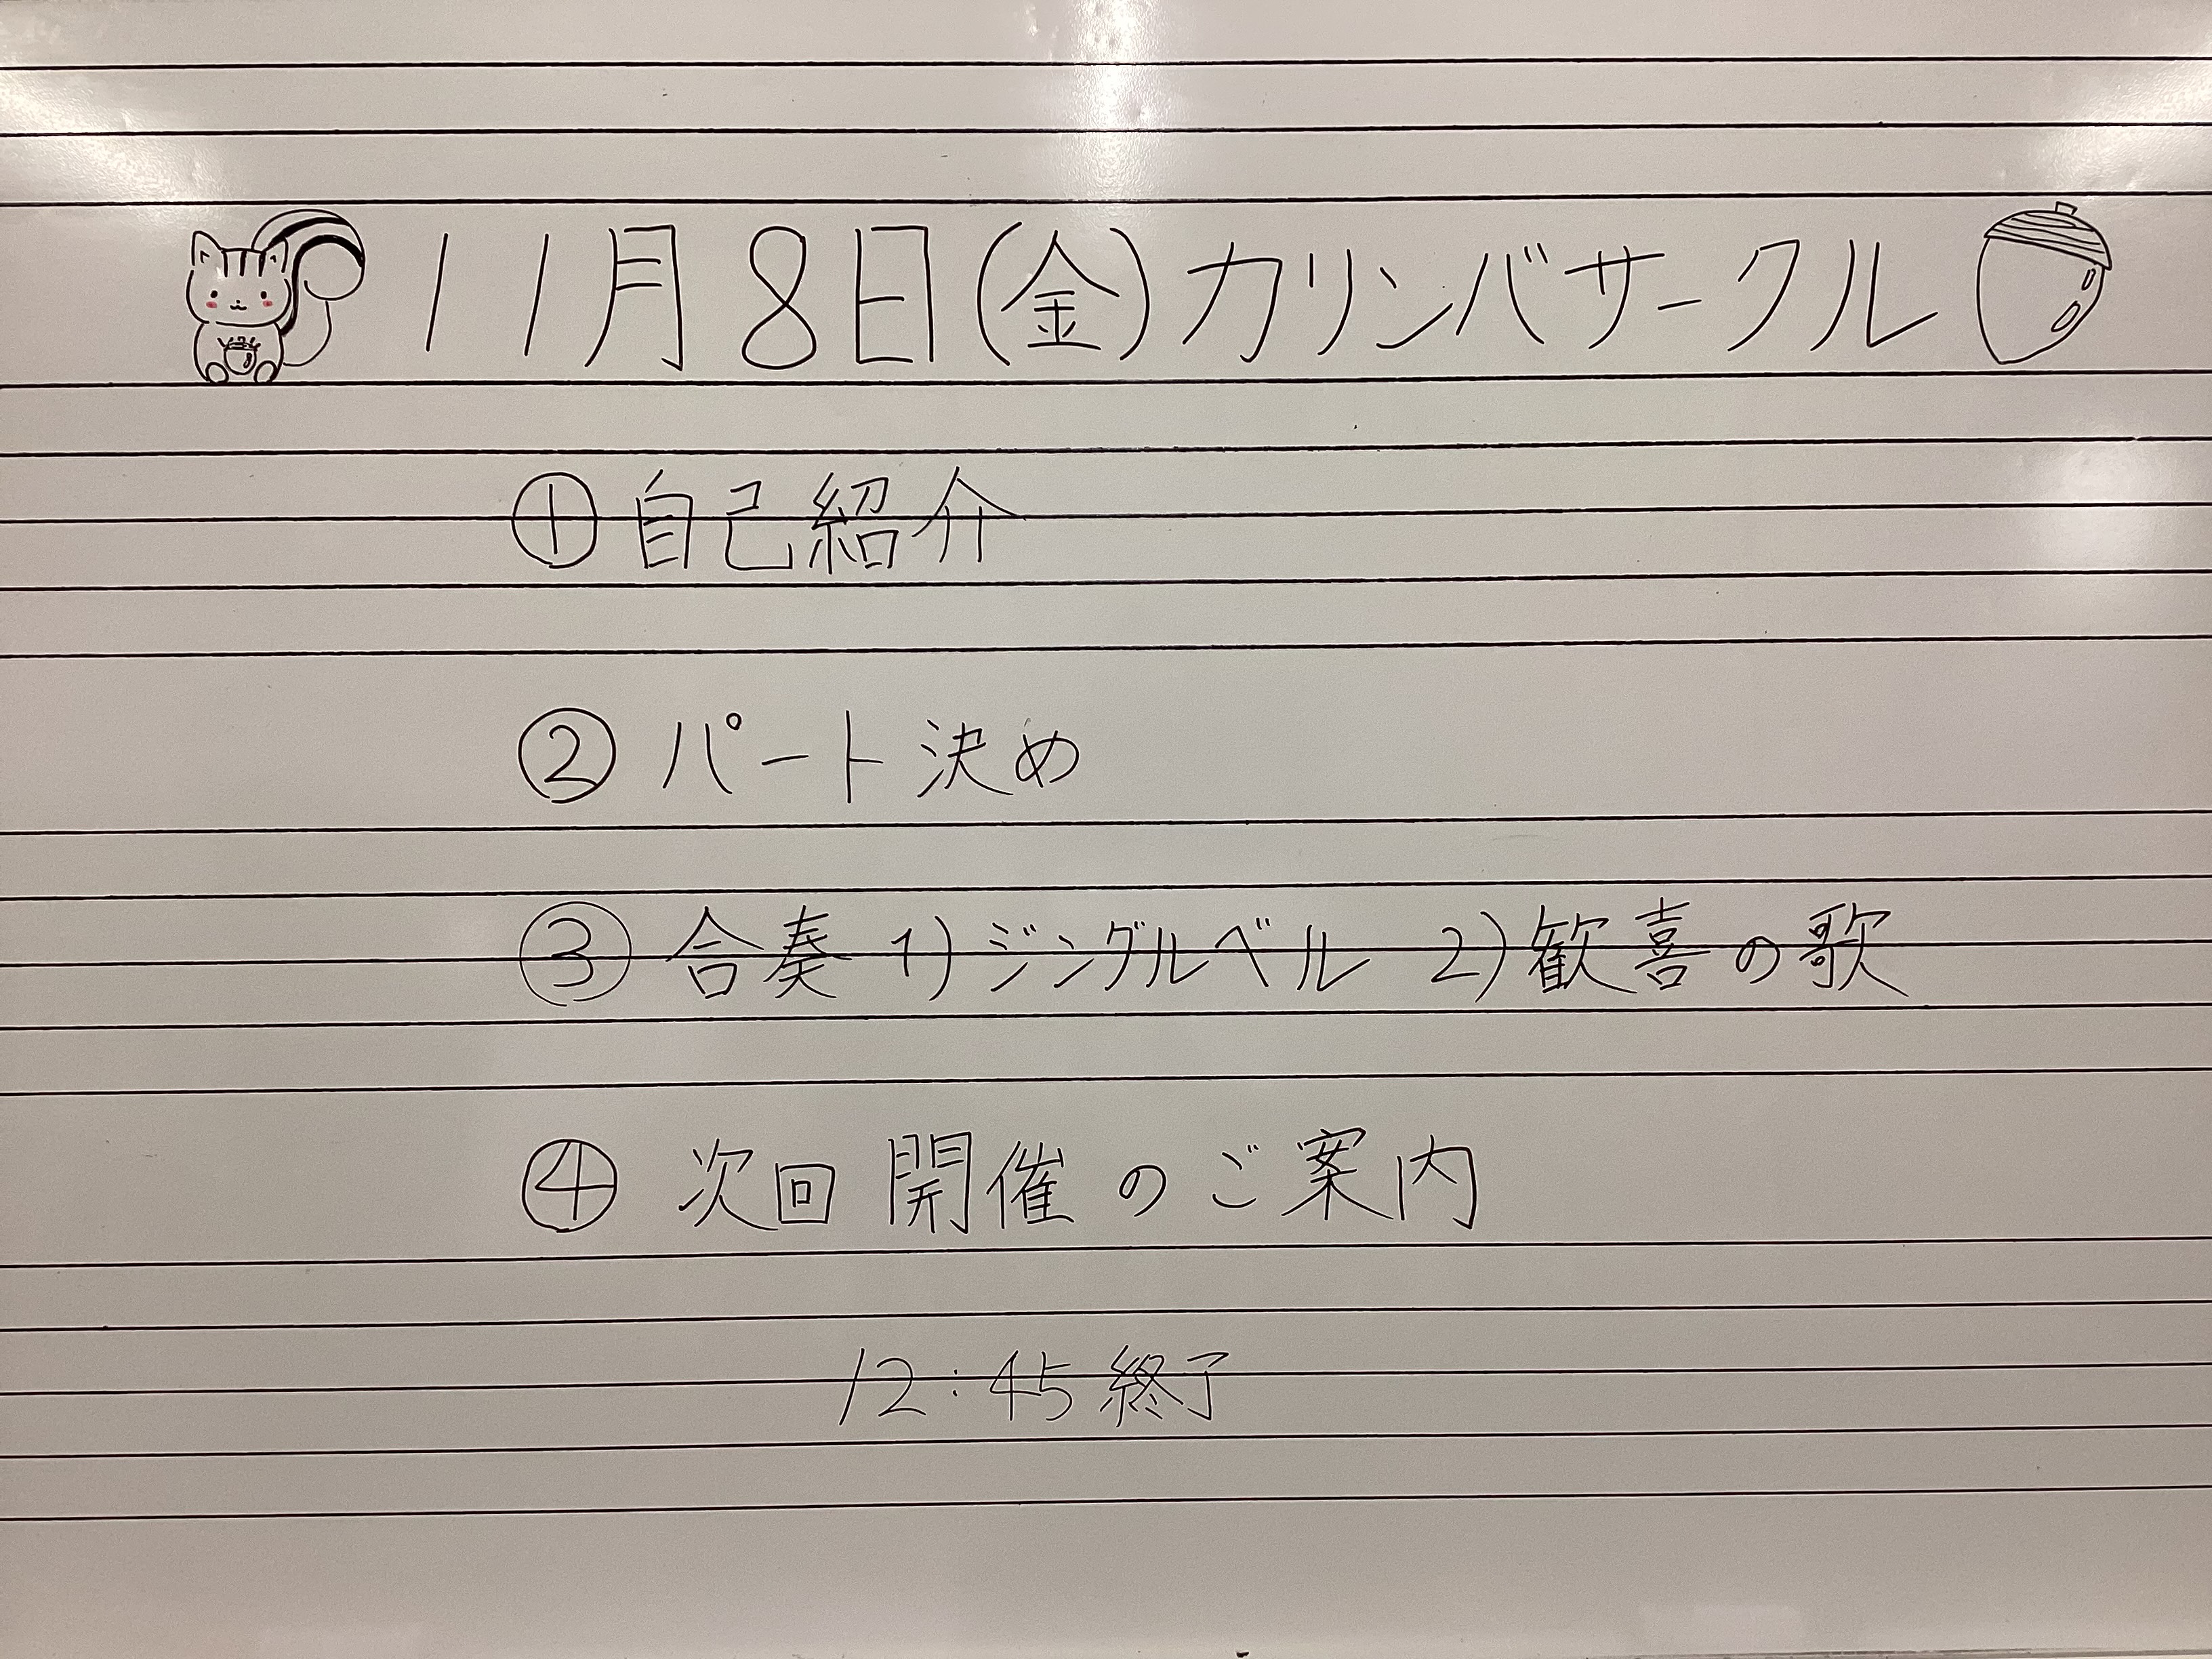 11月8日(金)カリンバサークル
①自己紹介
②パート決め
③合奏 1)ジングルベル 2)歓喜の歌
④次回開催のご案内
12:45終了